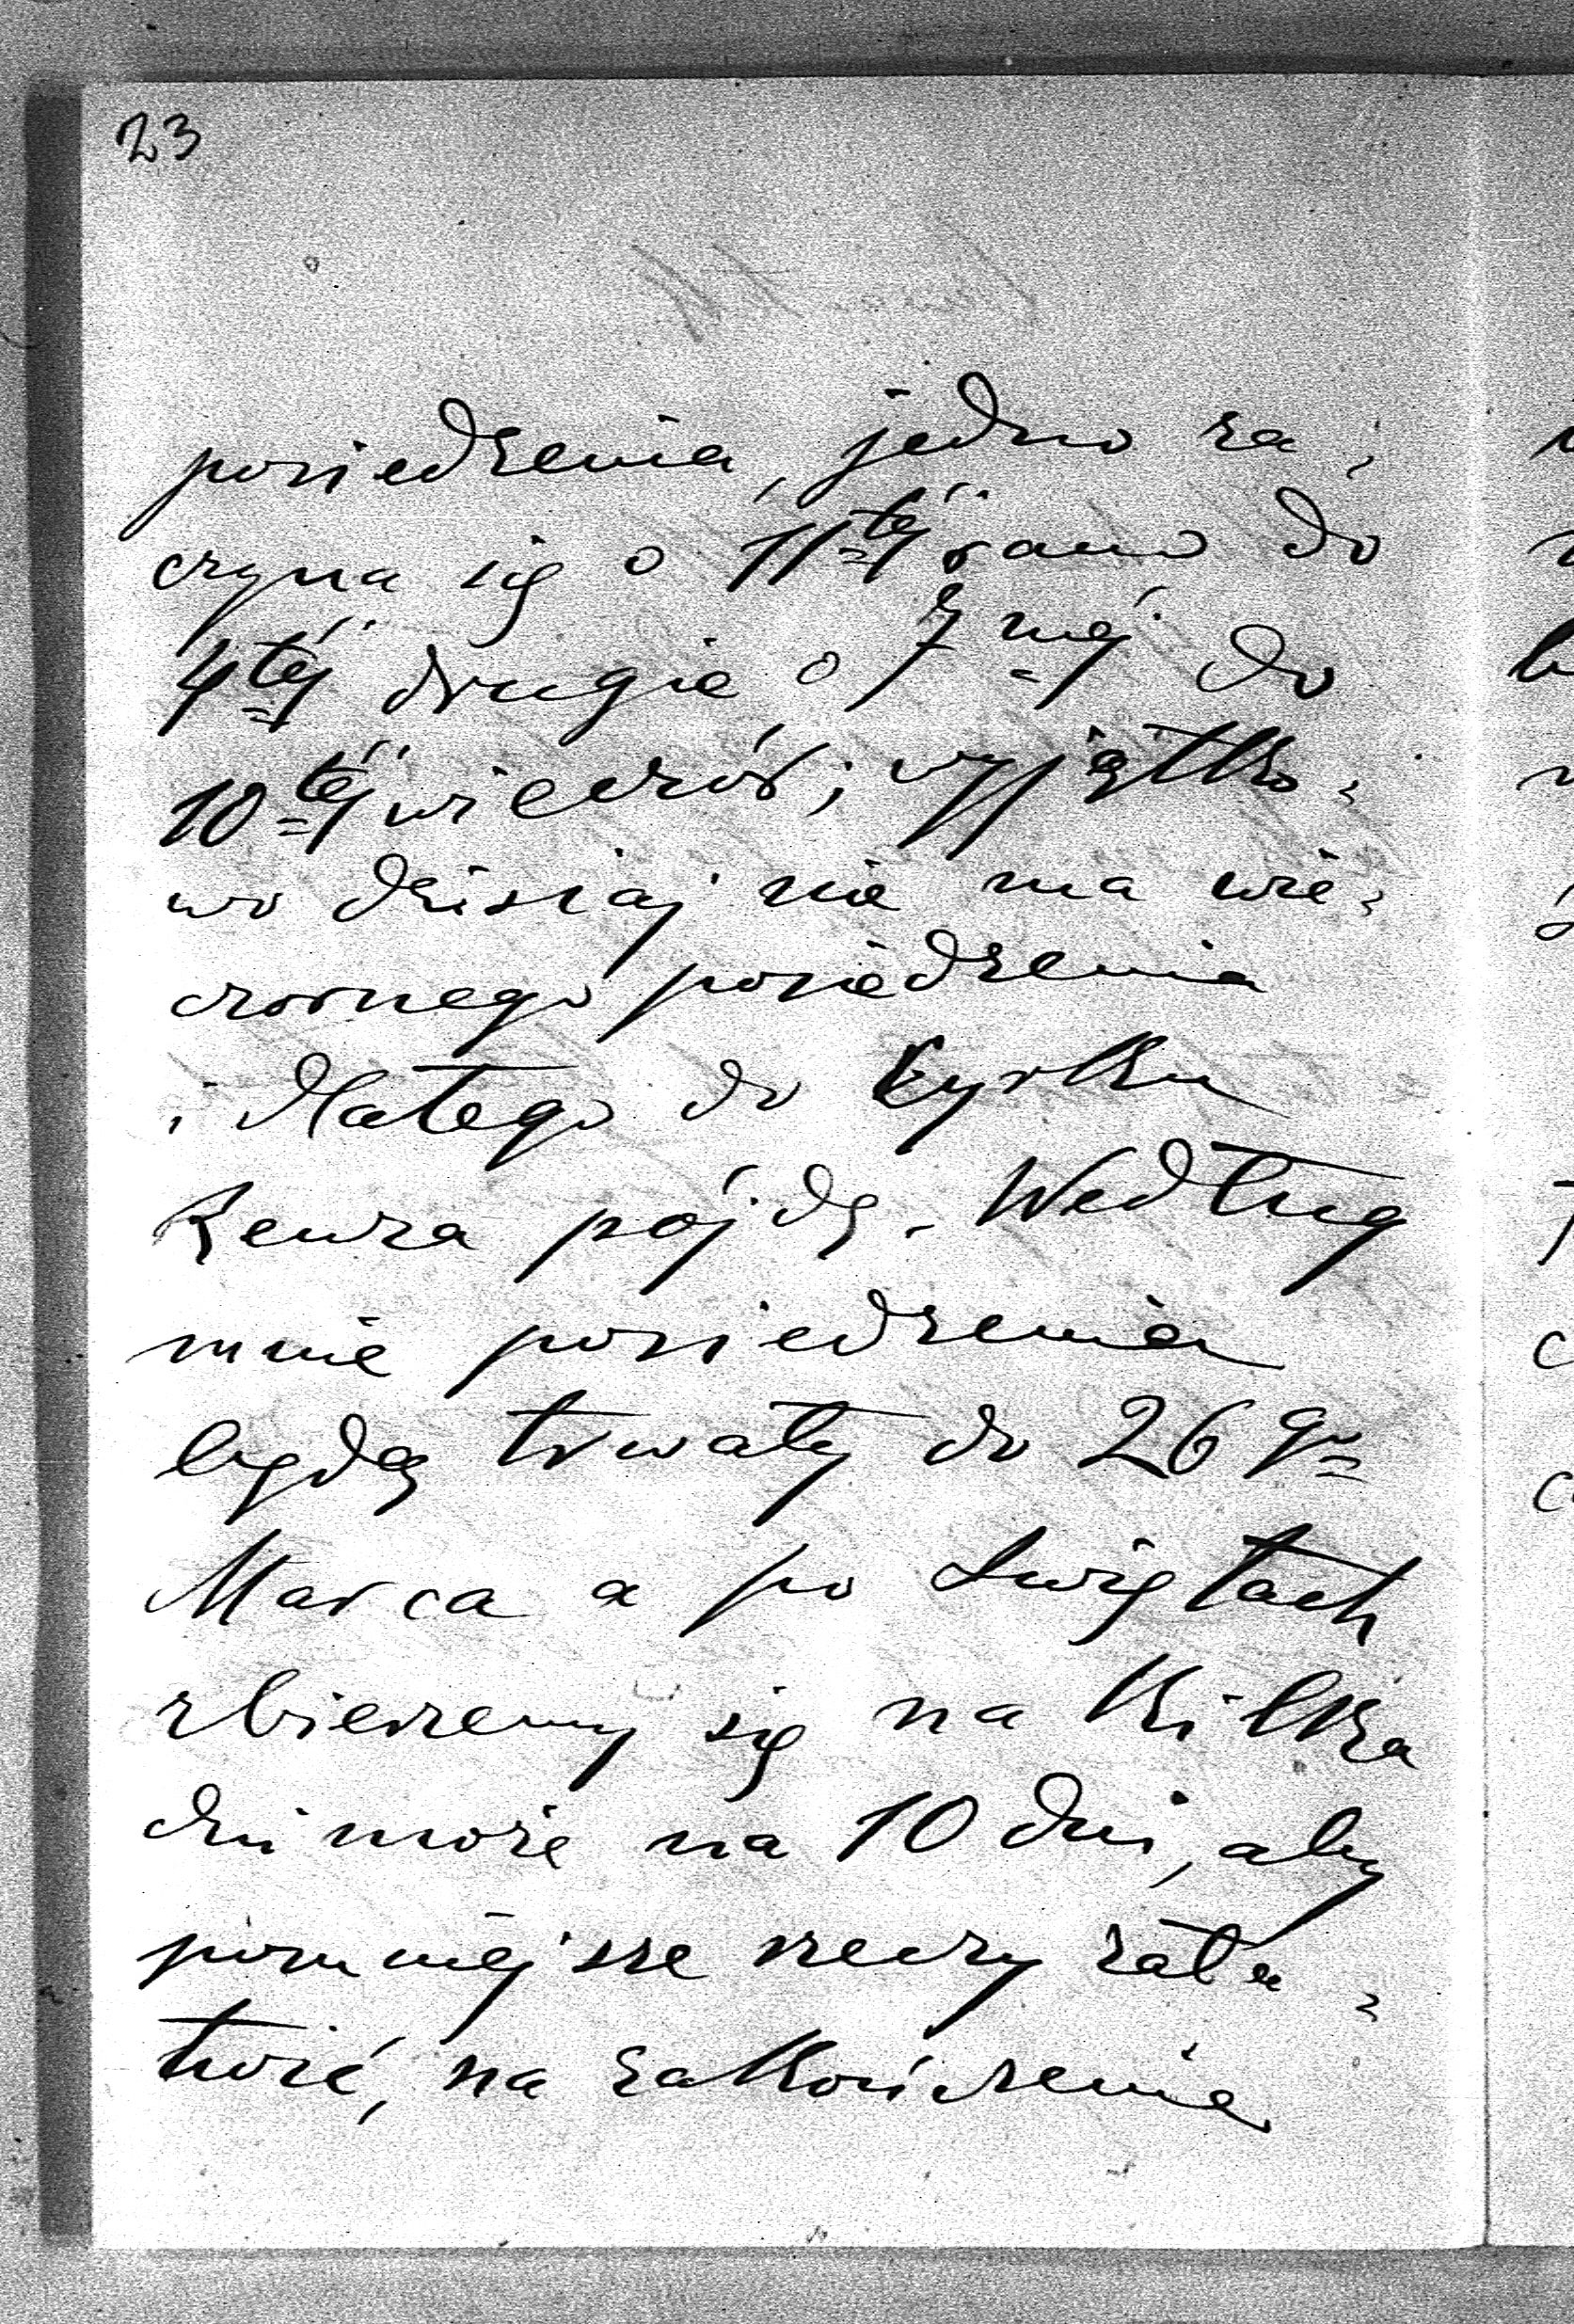 23
posiedzenia, jedno za-
czyna się o 11-téj rano do
4téj drugie o 7méj do
10téj wieczór; wyjątko-
wo dzisiaj nie ma wie-
czornego posiedzenia
i dlatego do Cyrku
Renza pójdę. Według
mnie posiedzenia
będą trwały do 26go
Marca a po Świętach
zbierzemy się na kilka
dni może na 10 dni, aby
pomniéjsze rzeczy załat-
twić, na zakończenie